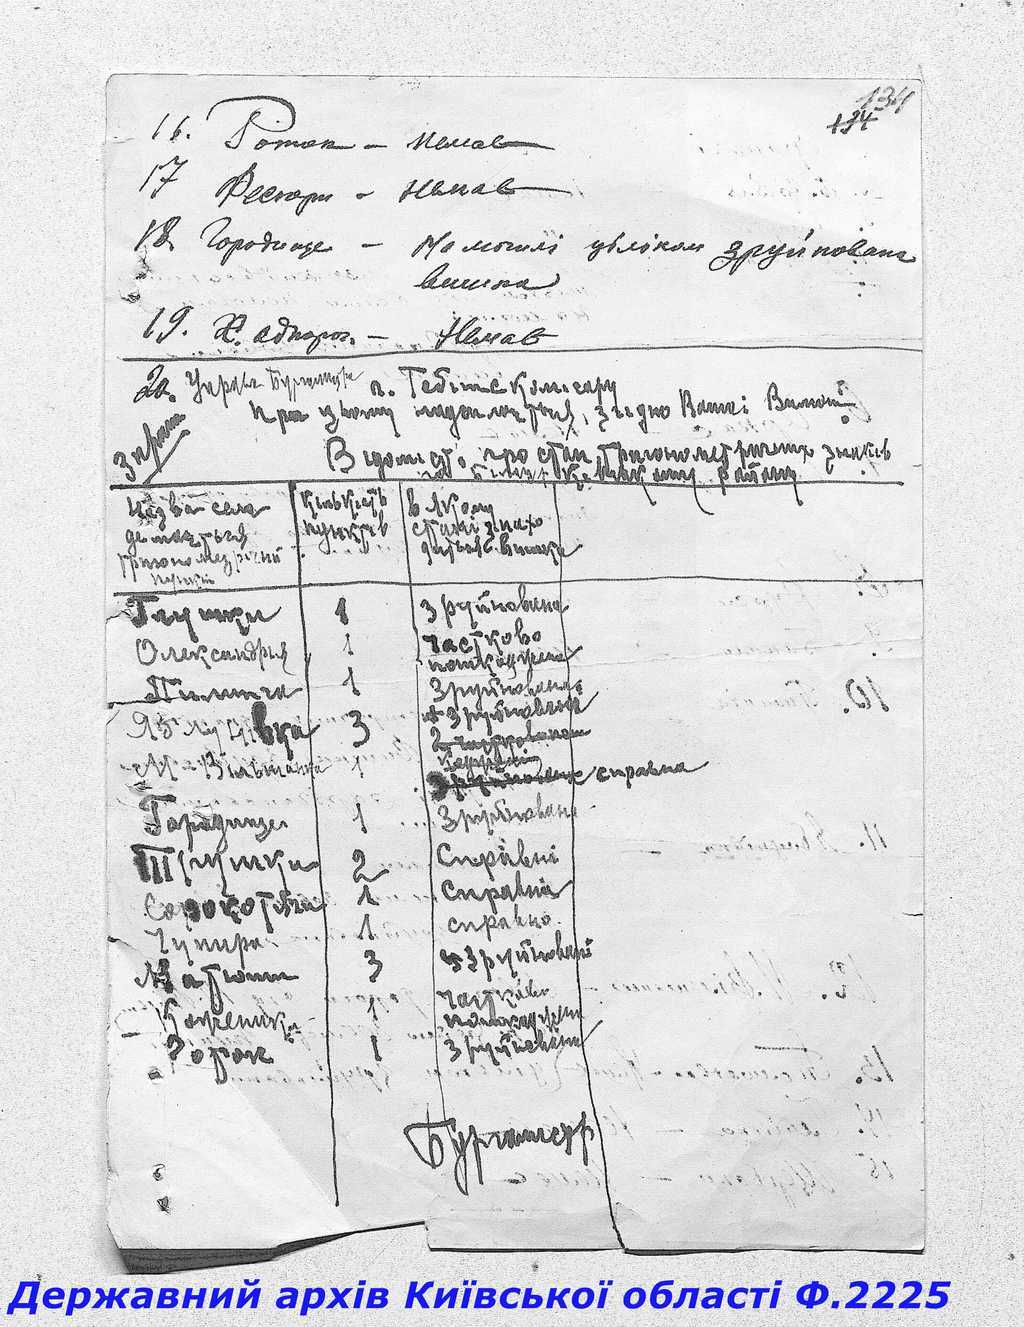 134
134
16. Роток – Немає
17 Фестори – Немає
18. Городище – На могилі цілком зруйнована
вишка
19. Х. – Немає
20. Управа Бургомістра п. Гебітскомісару
При цьому надсилається, згідно Вашої Вимоги
Зараз
Відомість про стан тригонометричних знаків
по Білоцерківському району
Назва села
де
тригонометричний
пункт
кількість
пунктів
в якому
стані знахо
диться вишка
Глушки 1 Зруйнована
Олександрія 1 частково
пошкоджена
Пилипча 1 Зруйнована
Яблунівка 3 Зруйнована
2
М-Вільшанка 1 справна
Городище 1 Зруйнована
Трушки 2 Справні
Сорокотяга 1 справна
Чупира 1 справно
Матюші 3 Зруйновані
Кожаники 1 частково
пошкоджена
Роток 1 Зруйнована
Бургомістр
Державний архів Київської області Ф.2225